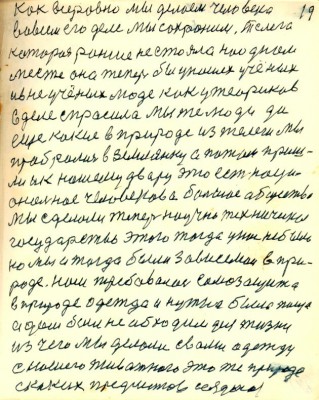 19
Как всеровно мы делаем человека
в своем его деле мы сохраним, телега
которая раньше не стояла на одном
месте она теперь бы у наших учёных
и в не учёных люде как у теориков
в деле спрасила мы те люди да
еще какие в природе из телеги мы
пробрались в землянку а потом приш-
ли и к нашему двару это ест наци-
ональное человека в большое общество
мы сделали теперь научно техническое
государство этого тогда у них не было
но мы и тогда были зависемы в при-
роде. нам требавалась самозащита
в природе одежда и нужна была пища
и дом были не абходим для жизни
из чего мы делали свою одежду
с нашего животного это же природе
с каких предметов создана